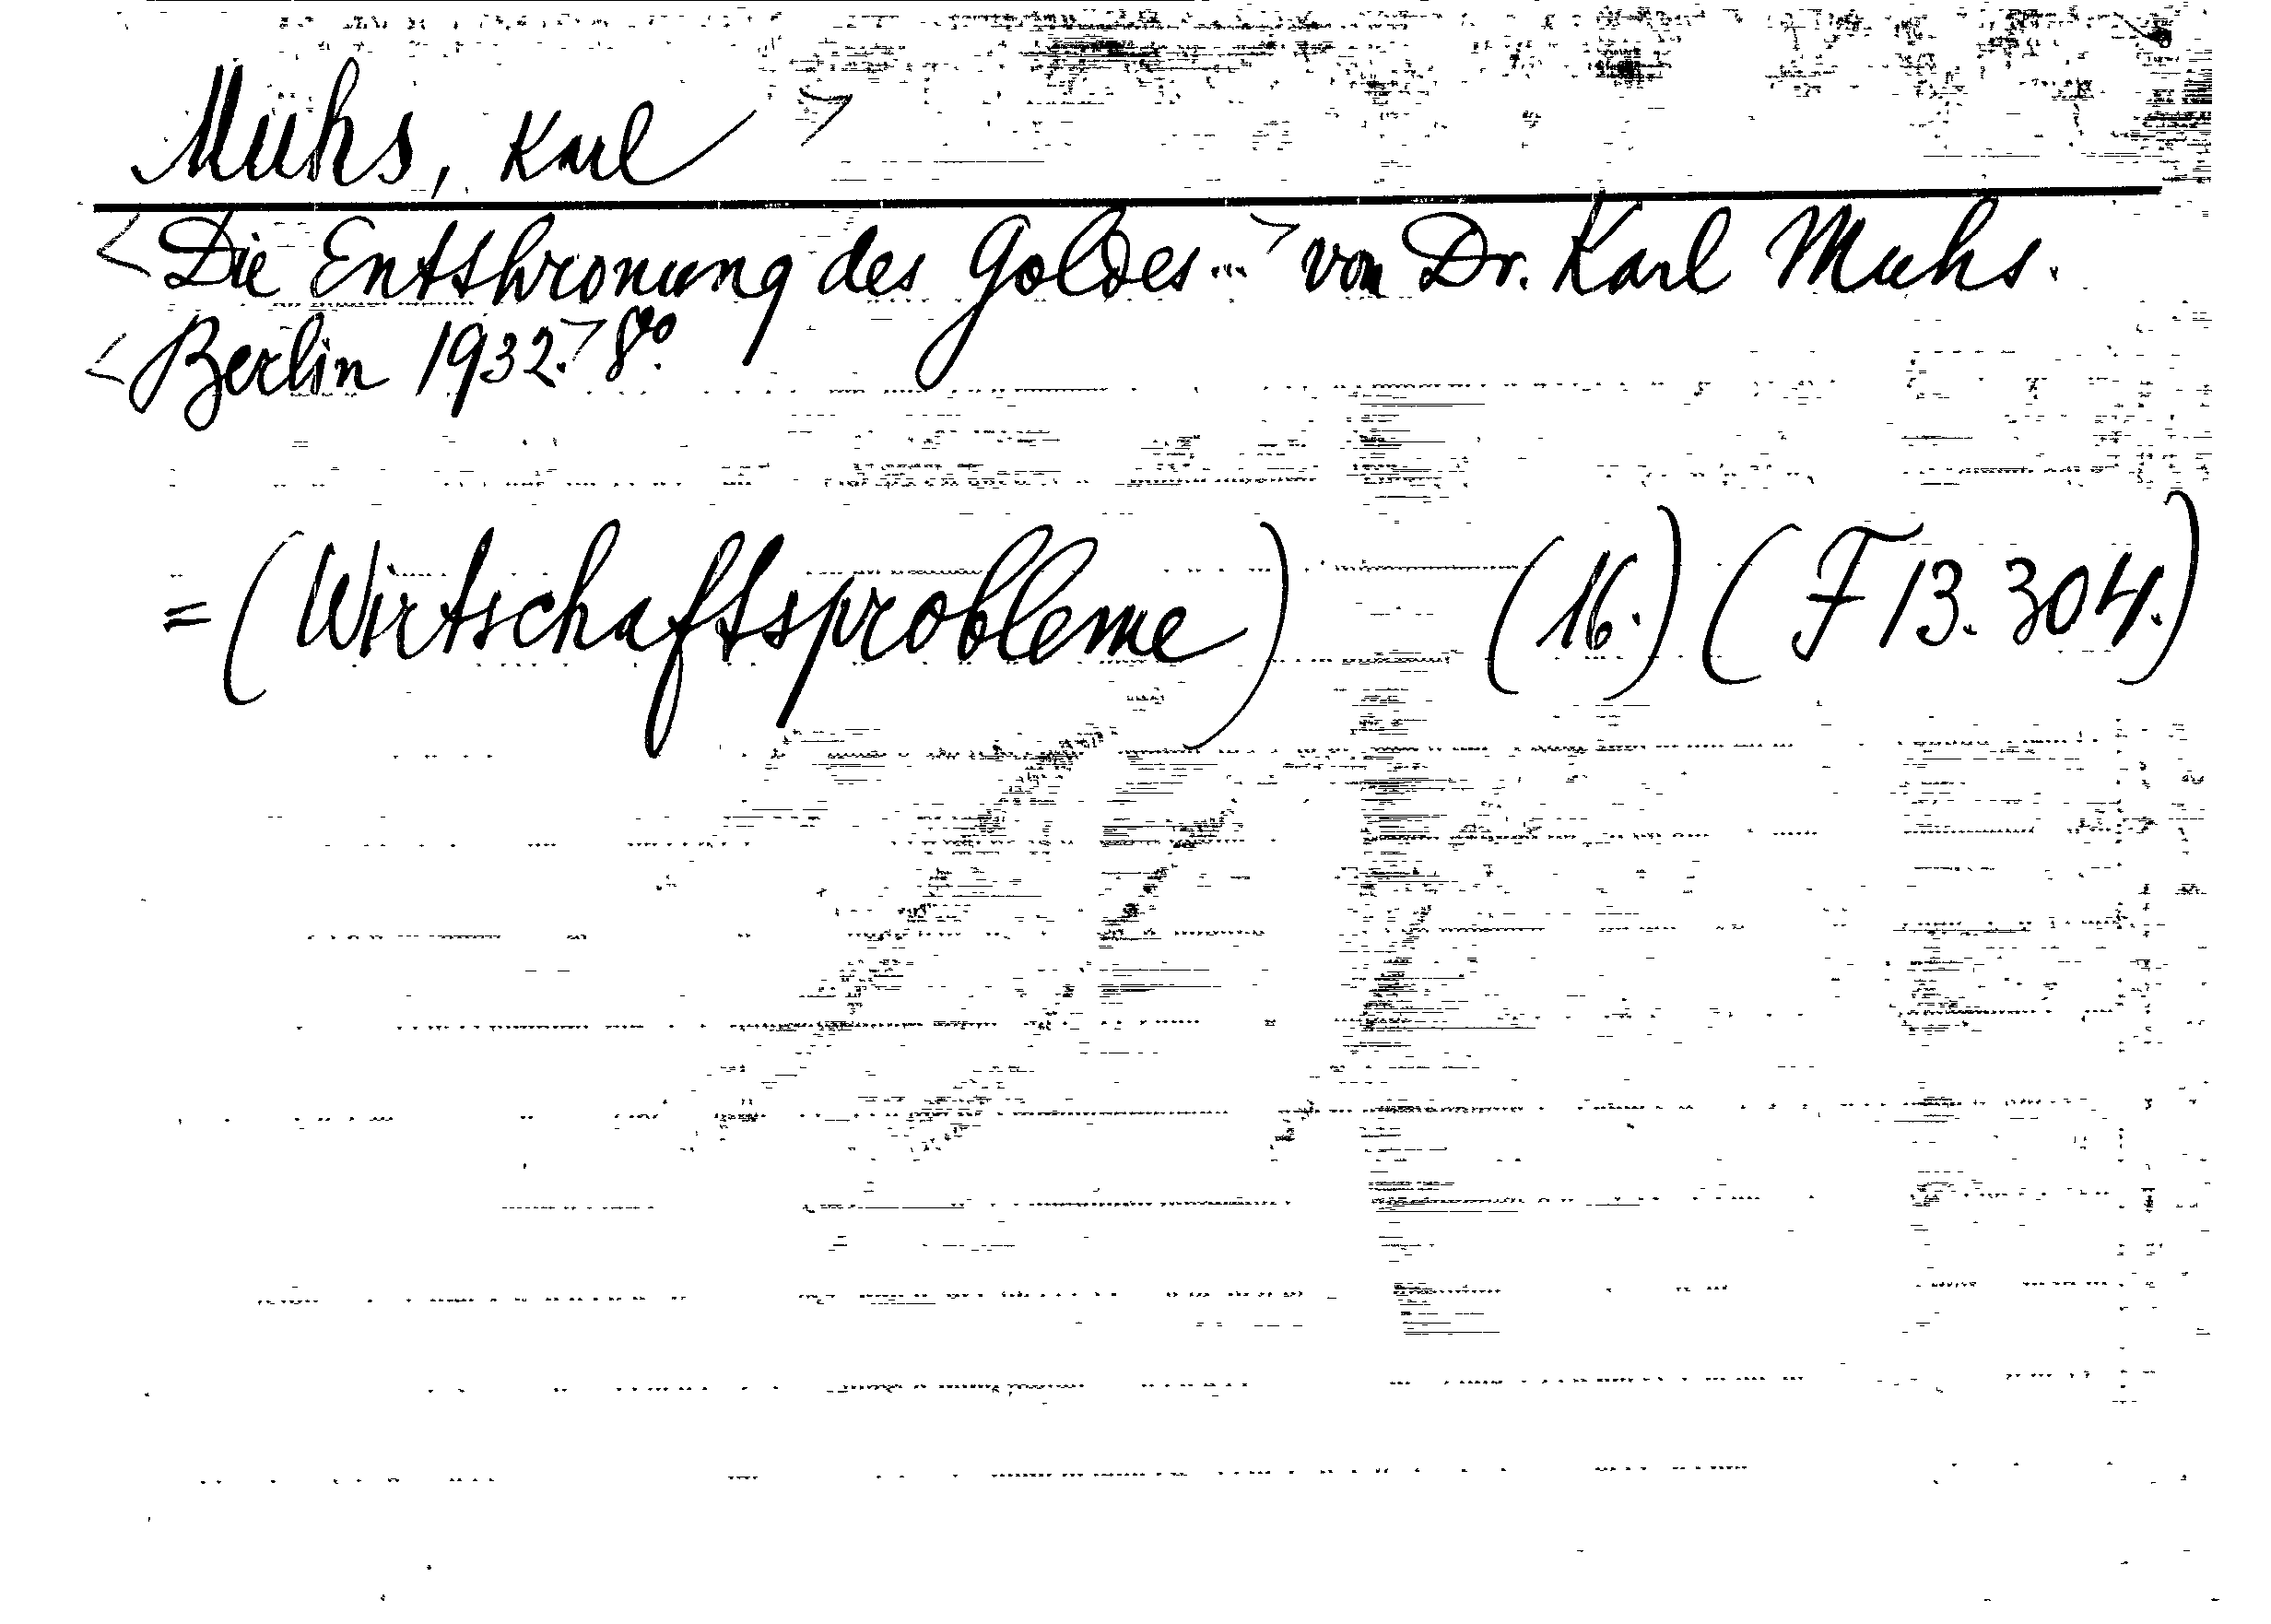 Muhs, Karl >
< Die Entshronung des Goldes ... > von Dr. Karl Muhs.
< Berlin 1932. > 8º.
= (Wirtschaftsprobleme) (16.) (F 13.304.)